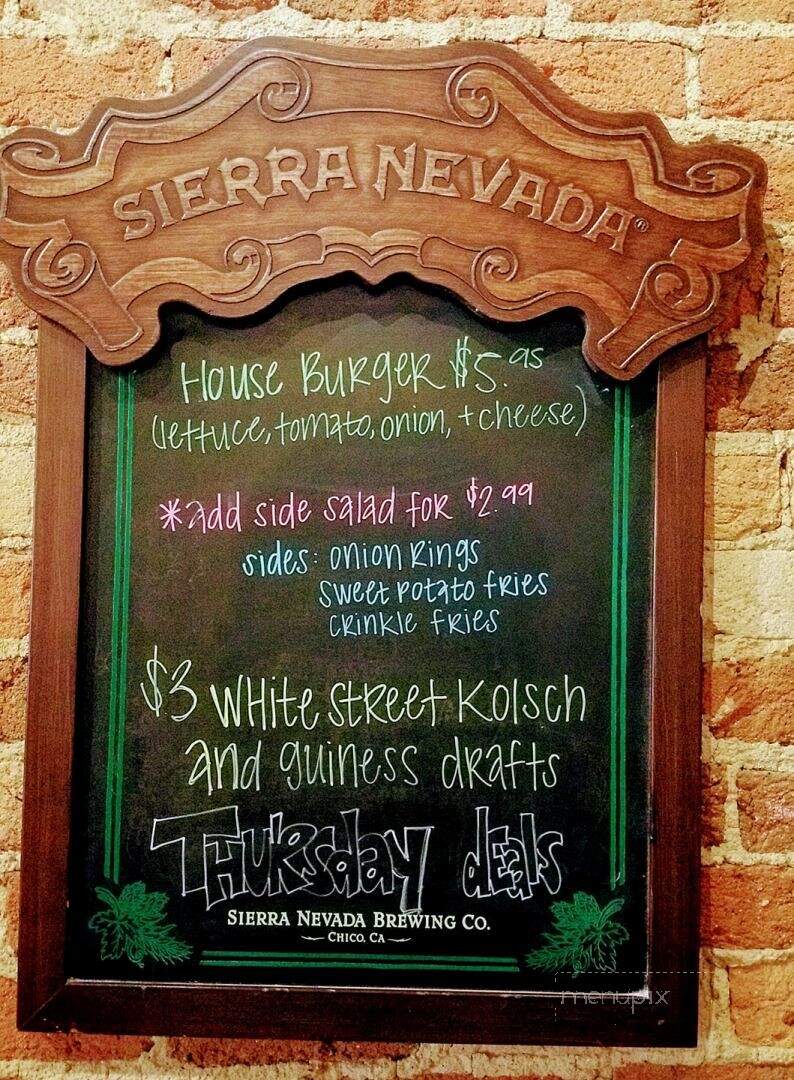 SIERRA NEVADA®
House Burger $5.95
(lettuce, tomato, onion, + cheese)
*add side salad for $2.99
sides: onion rings
sweet potato fries
crinkle fries
$3 White Street Kolsch
and guiness drafts
Thursday deals
SIERRA NEVADA BREWING CO.
CHICO, CA
menupix